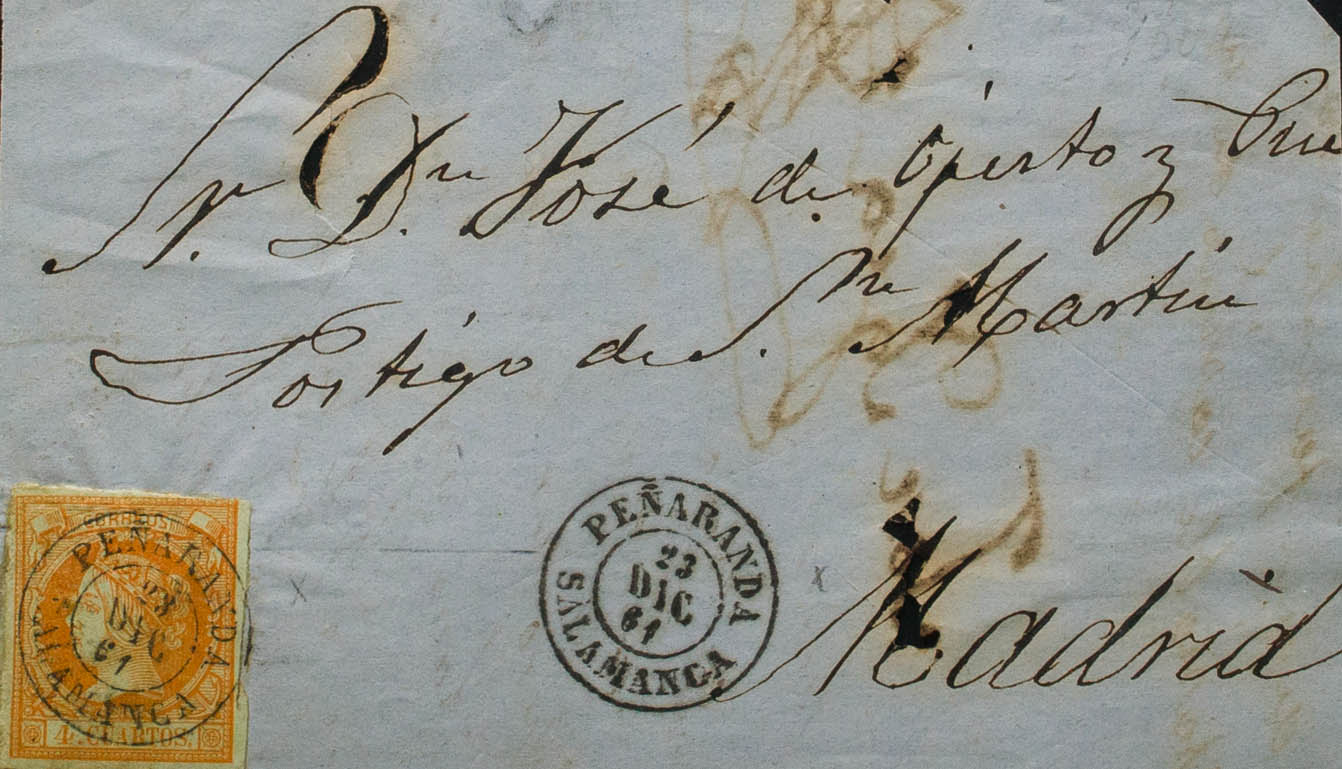 Sr. Dn. José de Opesto y
Postigo de S. n Martin
Madrid
PEÑARANDA
23
DIC
61
SALAMANCA
CORREOS
PEÑARANDA
23
DIC
61
SALAMANCA
4 CUARTOS.